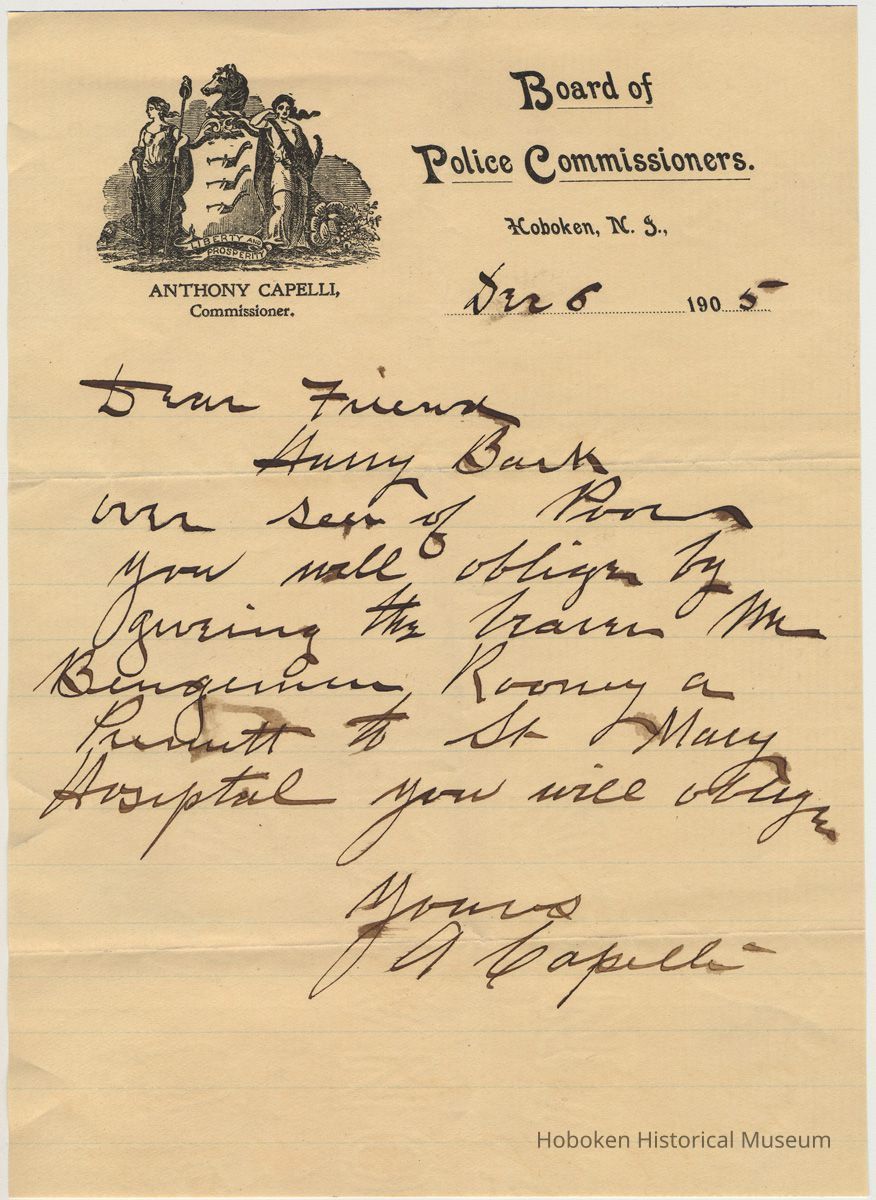 Board of
Police Commissioners.
Hoboken, N. J.,
LIBERTY AND
PROSPERITY
ANTHONY CAPELLI,
Commissioner.
Dec 6 1905
Dear Friend
Harry Bark
over seer of Poor
you will oblige by
giveing the bearer Mr
Bengemin Rooney a
Permitt to St Mary
Hosiptal you will oblige
Yours
A Capelli
Hoboken Historical Museum